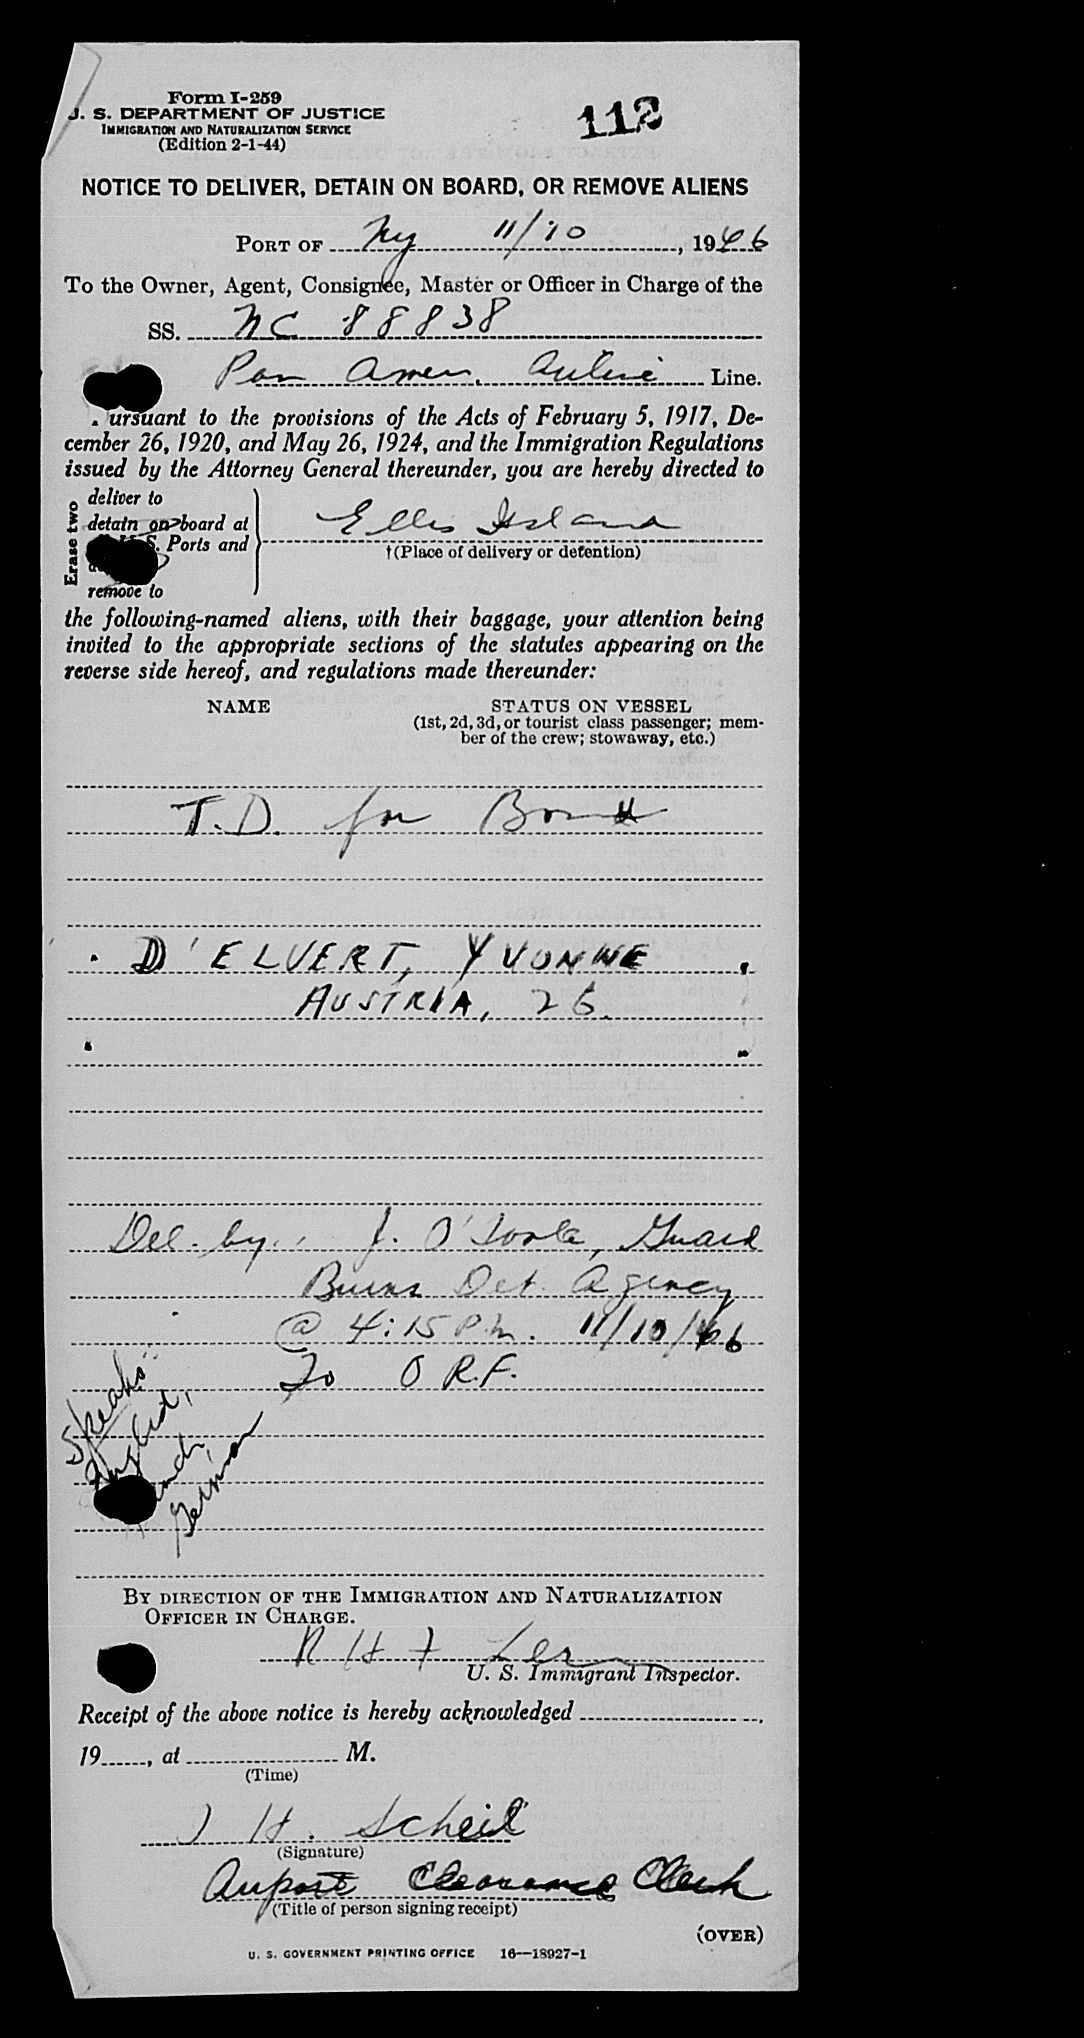 Form I-259
U. S. DEPARTMENT OF JUSTICE
IMMIGRATION AND NATURALIZATION SERVICE
(Edition 2-1-44)
112
NOTICE TO DELIVER, DETAIN ON BOARD, OR REMOVE ALIENS
PORT OF Ny 11/10, 1946
To the Owner, Agent, Consignee, Master or Officer in Charge of the
SS. NC 88838
Pan Amer. Airline Line.
ursuant to the provisions of the Acts of February 5, 1917, De-
cember 26, 1920, and May 26, 1924, and the Immigration Regulations
issued by the Attorney General thereunder, you are hereby directed to
Erase two
deliver to
detain on board at
S. Ports and
remove to
Ellis Island
†(Place of delivery or detention)
the following-named aliens, with their baggage, your attention being
invited to the appropriate sections of the statutes appearing on the
reverse side hereof, and regulations made thereunder:
NAME STATUS ON VESSEL
(1st, 2d, 3d, or tourist class passenger; mem-
ber of the crew; stowaway, etc.)
T.D. for Bond
D'ELVERT, YVONNE
AUSTRIA, 26.
Del. by J. O'Toole, Guard
Burns Det. Agency
@ 4:15 P.M. 11/10/46
To O R.F.
Speaks
German
BY DIRECTION OF THE IMMIGRATION AND NATURALIZATION
OFFICER IN CHARGE.
U. S. Immigrant Inspector.
Receipt of the above notice is hereby acknowledged
19 , at M.
(Time)
H. Scheil
(Signature)
Airport Clearance Clerk
(Title of person signing receipt)
(OVER)
U. S. GOVERNMENT PRINTING OFFICE 16—18927-1